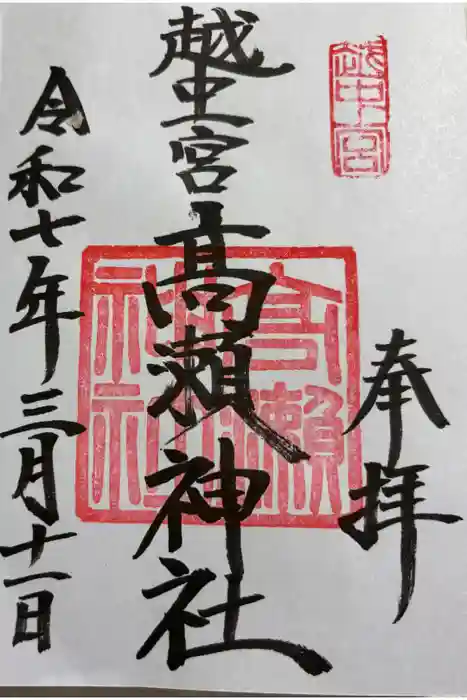 奉拝
越中一宮
越中一宮
高瀬神社
高瀬神社
令和七年三月十一日